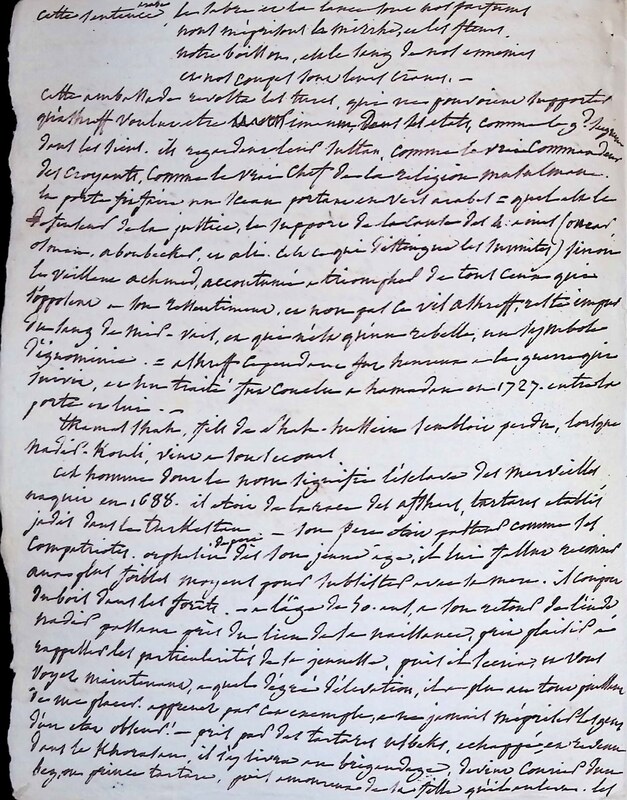 cette sentence arabe le sabre et la lance sont nos parfums
nous méprisons la mirrhe, et les fleurs.
notre boisson, est le sang de nos ennemis
et nos coupes sont leurs cranes. —
cette ambassade revolta les turcs, qui ne pouvoient supporter
qu'ashreff voulut etre iman dans ses etats, comme le g.d seigneur
dans les siens. ils regardoient leur sultan, comme le vrai Commandeur
des Croyants, comme le vrai Chef de la religion musulmane.
la porte fit faire un sceau portant en vers arabes = quel est le
de la justice, le support de la cause des 4. amis (omar
osman. aboubecker, et ali. c'est ce qui distingue les sunnites) sinon
le vaillant achmed, accoutumé a triompher de tout ceux qui
s'opposent a son ressentiment. et non pas ce vil ashreff, teint
du sang de mir-vais, et qui n'est qu'un rebelle, un symbole
d'ignominie. = ashreff cependant fut heureux a la guerre qui
suivit, et un traité fut conclu a hamadan en 1727. entre la
porte et lui. —
thamas shah, fils de shah-hussein sembloit perdu, lorsque
nadir-kouli, vint a son secours
cet homme dont le nom signifie l'esclave des merveilles
naquit en 1688. il etoit de la race des afshars, tartares etablis
jadis dans le turkestan — son pere etoit pasteur comme ses
compatriotes. orphelin de pere dès son jeune age, il lui fallut recourir
aux plus foibles moyens pour subsister avec sa mere. il coupoit
du bois dans les forêts. — a l'age de 50. ans, a son retour de l'inde
nadir passant près du lieu de sa naissance, prit plaisir à
rappeller les particularités de sa jeunesse, puis il s'ecria, et vous
voyez maintenant, a quel dégré d'élevation, il a plu au tout puissant
de me placer. apprenez par cet exemple, a ne jamais mépriser les gens
d'un etat obscur. — pris par des tartares usbeks, echappé, et revenu
dans le Khorasan, il s'y livra au brigandage, devint Courier d'un
bey, ou prince tartare, puis amoureux de sa fille qu'il enleva. les